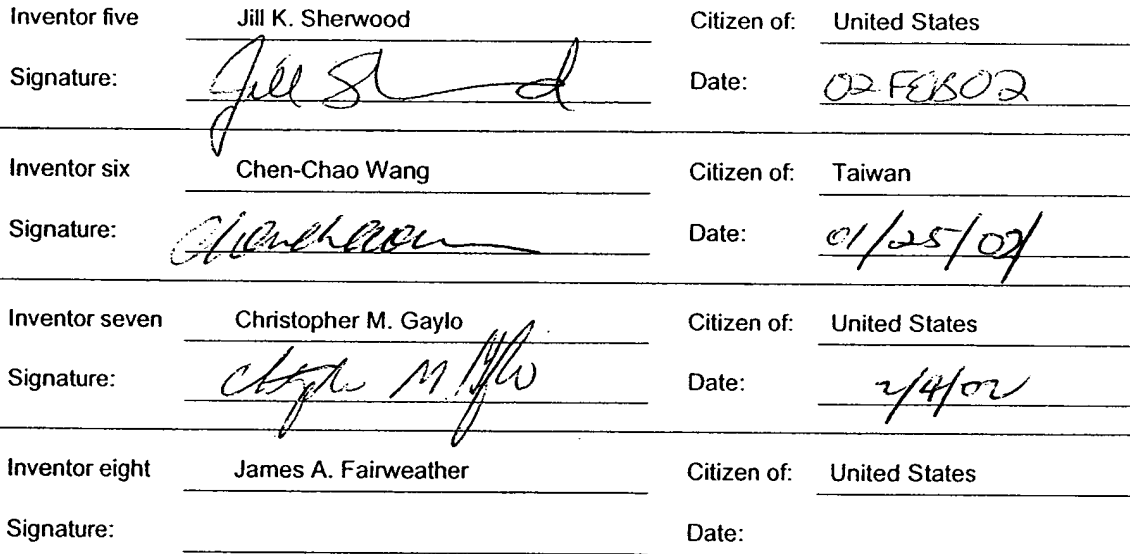 Inventor five Jill K. Sherwood Citizen of: United States
Signature: Jill Sherwood Date: 02 FEB 02
Inventor six Chen-Chao Wang Citizen of: Taiwan
Signature: Date: 01/25/02
Inventor seven Christopher M. Gaylo Citizen of: United States
Signature: Date: 2/4/02
Inventor eight James A. Fairweather Citizen of: United States
Signature: Date: